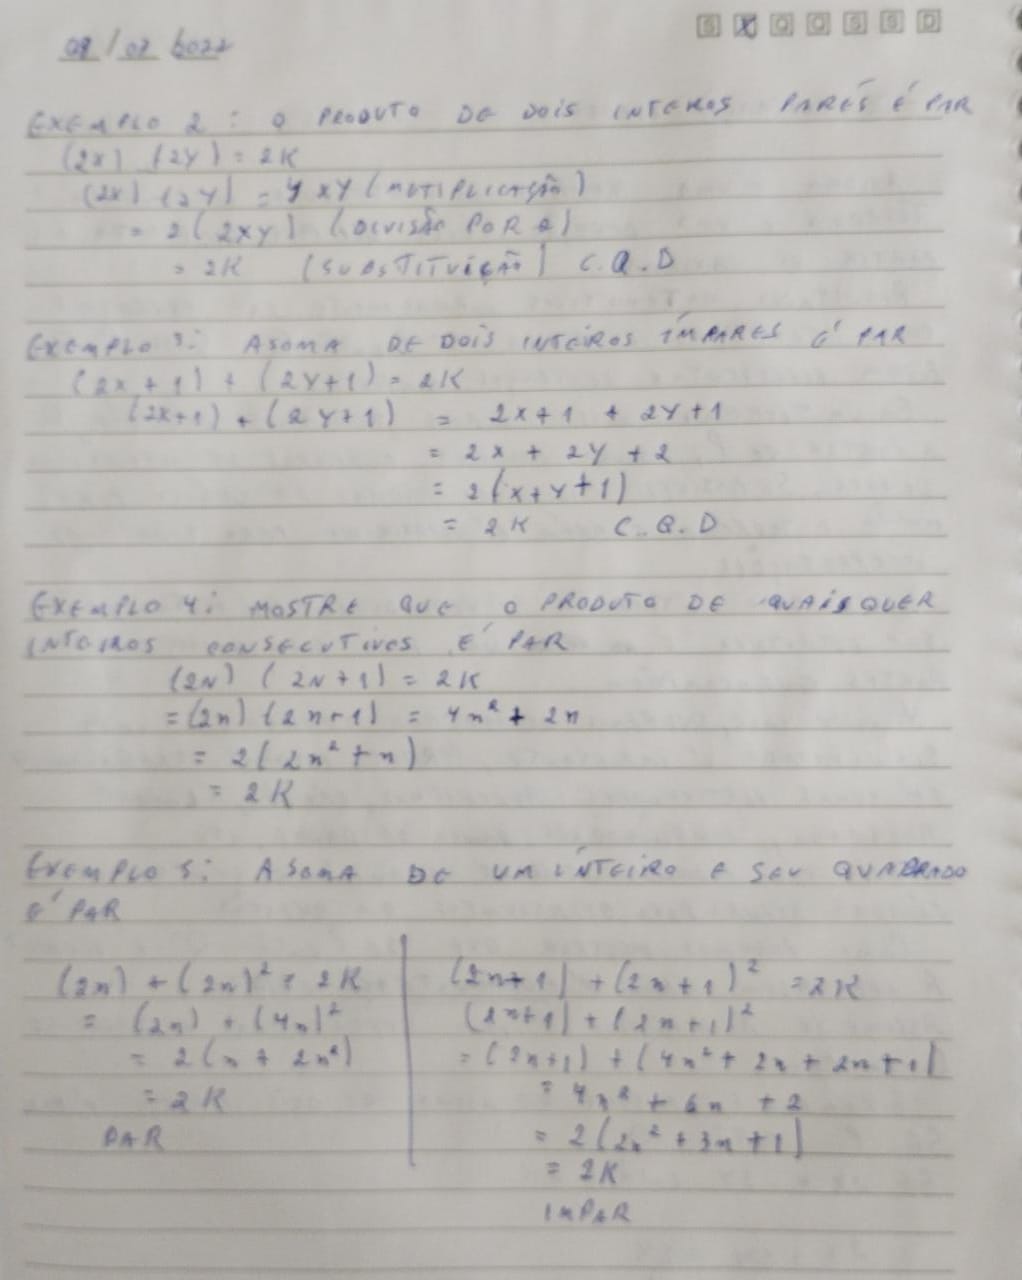 S X Q Q S S D
09/02 2022
EXEMPLO 2: O PRODUTO DE DOIS INTEIROS PARES É PAR
(2x) (2y) = 2K
(2x) (2y) = 4xy (MUTIPLICAÇÃO)
= 2(2xy) (DIVISÃO POR 2)
= 2K (SUBSTITUIÇÃO) C.Q.D
EXEMPLO 3: A SOMA DE DOIS INTEIROS ÍMPARES É PAR
(2x+1) + (2y+1) = 2K
(2x+1) + (2y+1) = 2x+1 + 2y+1
= 2x + 2y + 2
= 2(x+y+1)
= 2K C.Q.D
EXEMPLO 4: MOSTRE QUE O PRODUTO DE QUAISQUER
INTEIROS CONSECUTIVOS É PAR
(2N) (2N+1) = 2K
= (2n) (2n+1) = 4n² + 2n
= 2(2n² + n)
= 2K
EXEMPLO 5: A SOMA DE UM INTEIRO E SEU QUADRADO
É PAR
(2n) + (2n)² = 2K
= (2n) + (4n)²
= 2(n + 2n²)
= 2K
PAR
(2n+1) + (2n+1)² = 2K
(2n+1) + (2n+1)²
= (2n+1) + (4n² + 2n + 2n + 1)
= 4n² + 6n + 2
= 2(2n² + 3n + 1)
= 2K
IMPAR